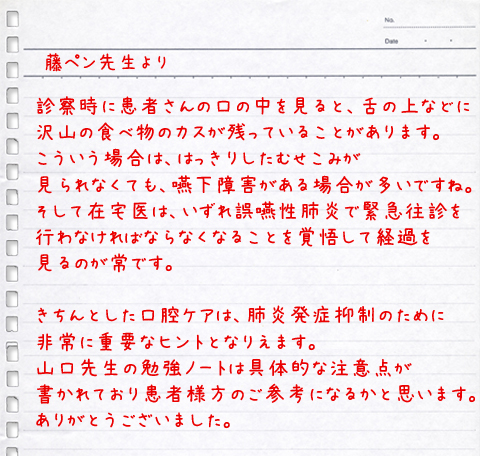 No.
Date ・ ・
藤ペン先生より
診察時に患者さんの口の中を見ると、舌の上などに
沢山の食べ物のカスが残っていることがあります。
こういう場合は、はっきりしたむせこみが
見られなくても、嚥下障害がある場合が多いですね。
そして在宅医は、いずれ誤嚥性肺炎で緊急往診を
行わなければならなくなることを覚悟して経過を
見るのが常です。
きちんとした口腔ケアは、肺炎発症抑制のために
非常に重要なヒントとなりえます。
山口先生の勉強ノートは具体的な注意点が
書かれており患者様方のご参考になるかと思います。
ありがとうございました。